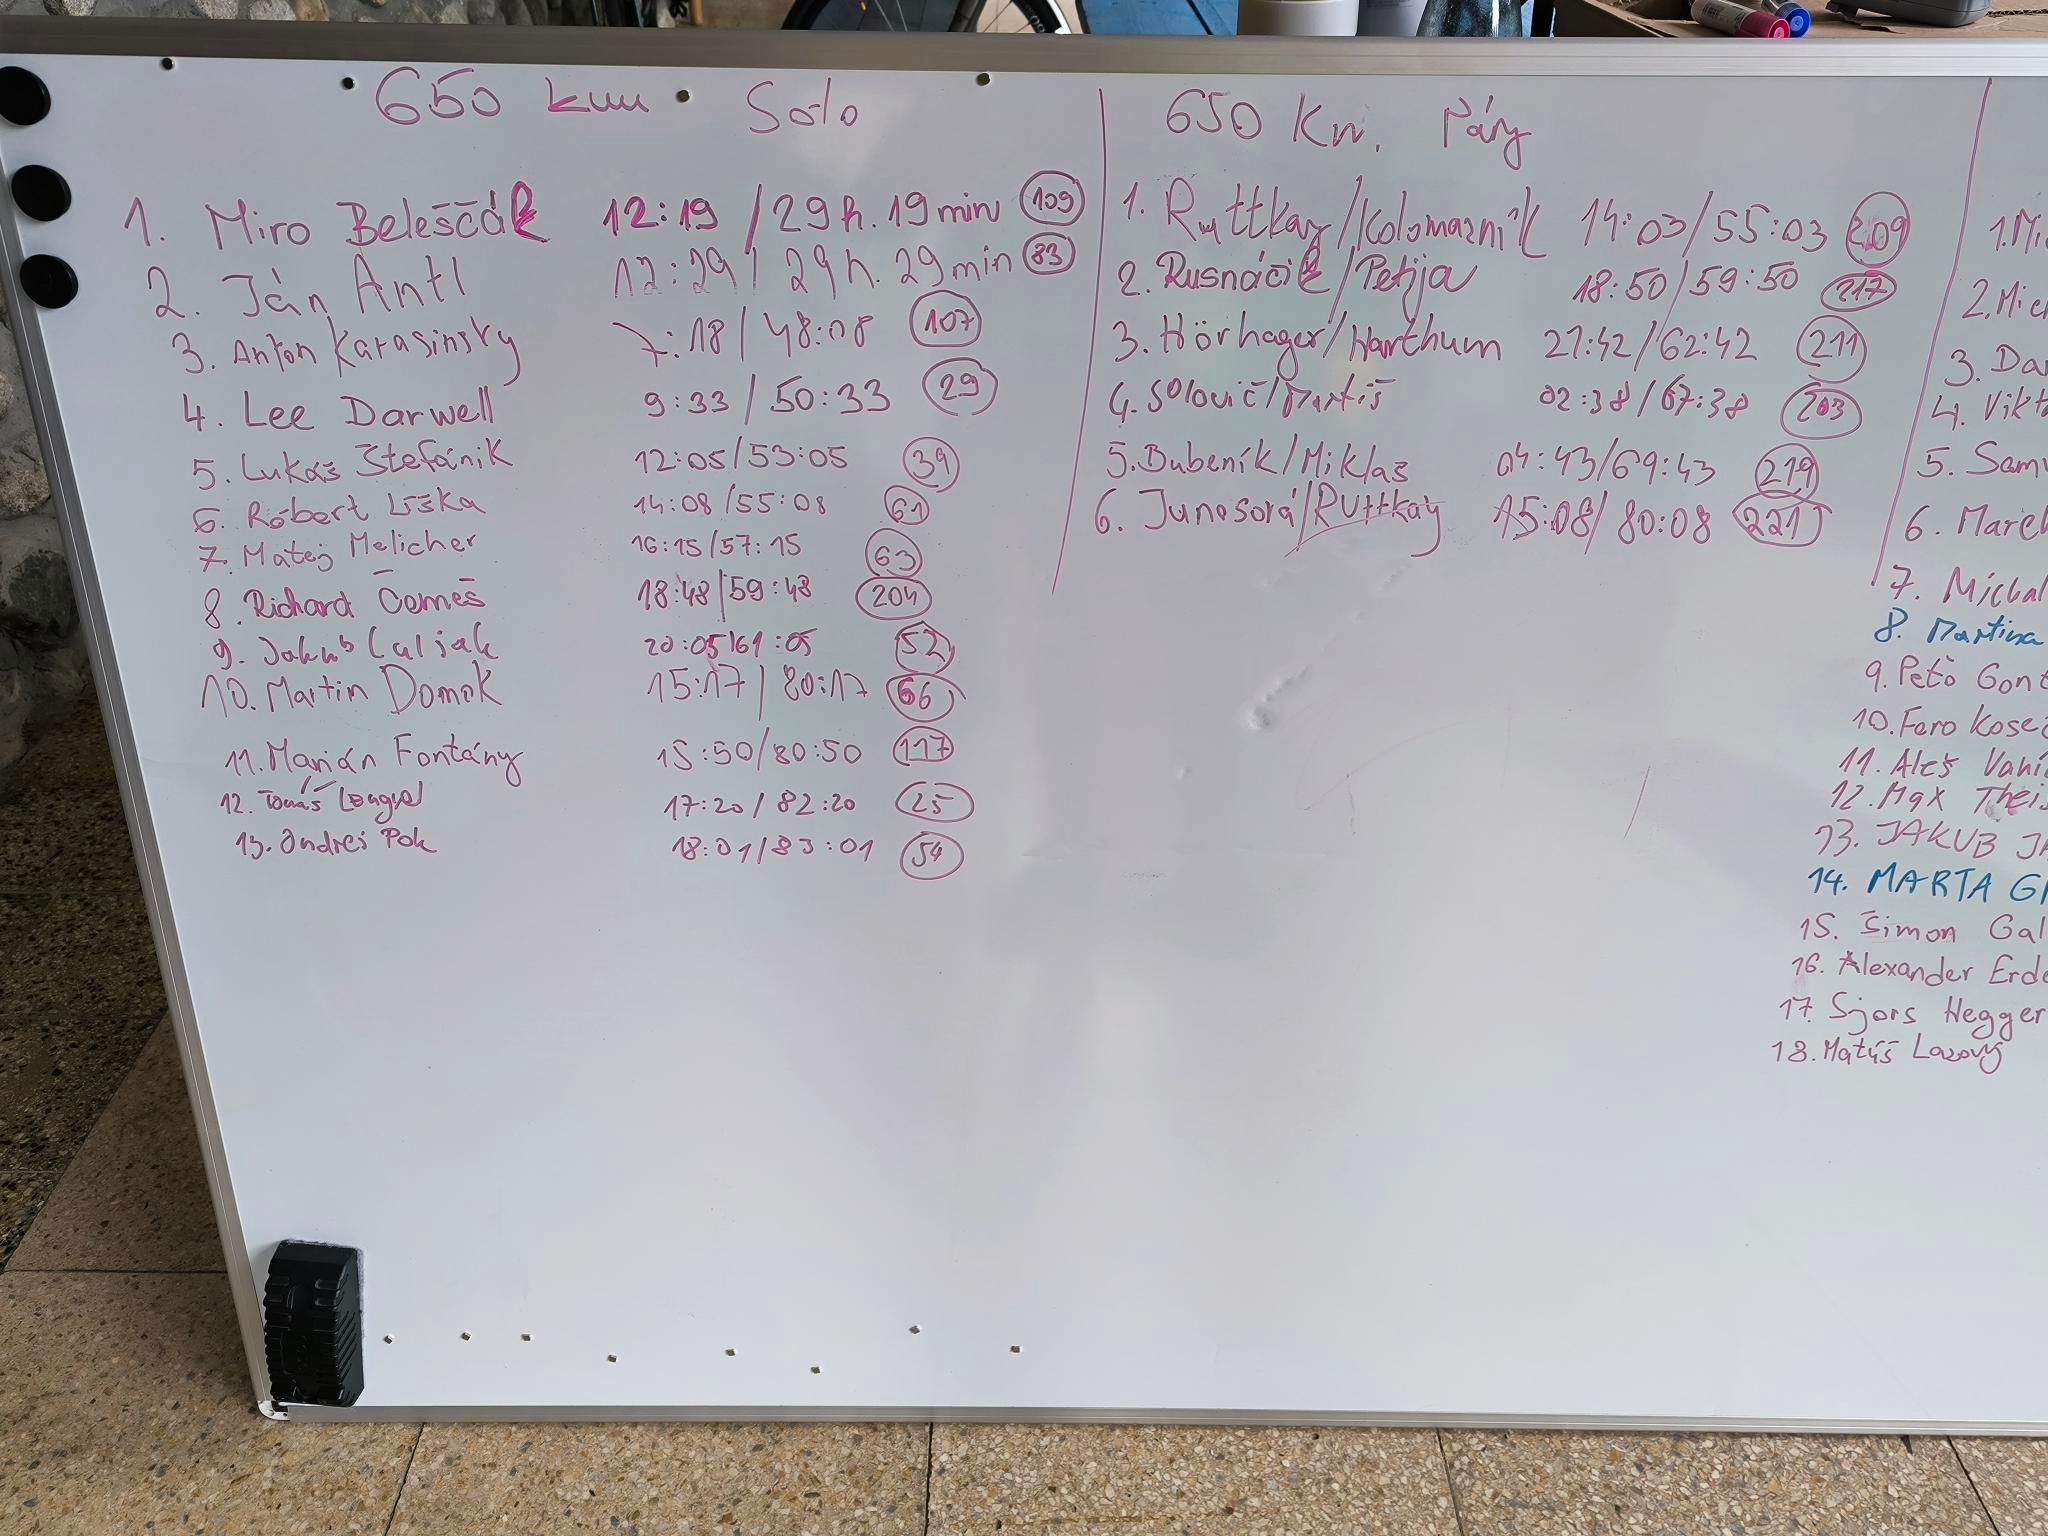 650 km Solo
1. Miro Beleščák 12:19 / 29 h. 19 min 109
2. Ján Antl 12:29 / 29 h. 29 min 83
3. Anton Karasinsky 7:18 / 48:18 107
4. Lee Darwell 9:33 / 50:33 29
5. Lukáš Štefánik 12:05/53:05 39
6. Róbert Liška 14:08/55:08 61
7. Matej Melicher 16:15/57:15 63
8. Richard Čemeš 18:48/59:48 204
9. Jakub Luljak 20:05/61:05 52
10. Martin Domok 15:17 / 80:17 66
11. Marián Fontány 15:50/80:50 117
12. Tomáš Lengyel 17:20 / 82:20 25
13. Ondrej Pok 18:01/83:01 54
650 Km. Páry
1. Ruttkay/Kolomazník 14:03/55:03 209
2. Rusnáčik/Petija 18:50/59:50 217
3. Hörhager/Harthum 21:42/62:42 211
4. Solovič/Martiš 02:38/67:38 203
5. Bubeník/Miklaš 04:43/69:43 219
6. Junasová/Ruttkay 15:08/80:08 221
1. Mi
2. Mich
3. Da
4. Vikt
5. Samu
6. Marek
7. Michal
8. Martina
9. Peťo Gont
10. Fero Kose
11. Aleš Vani
12. Max Theis
13. JAKUB JA
14. MARTA G
15. Šimon Gal
16. Alexander Erde
17. Sjors Hegger
18. Matúš Lazový